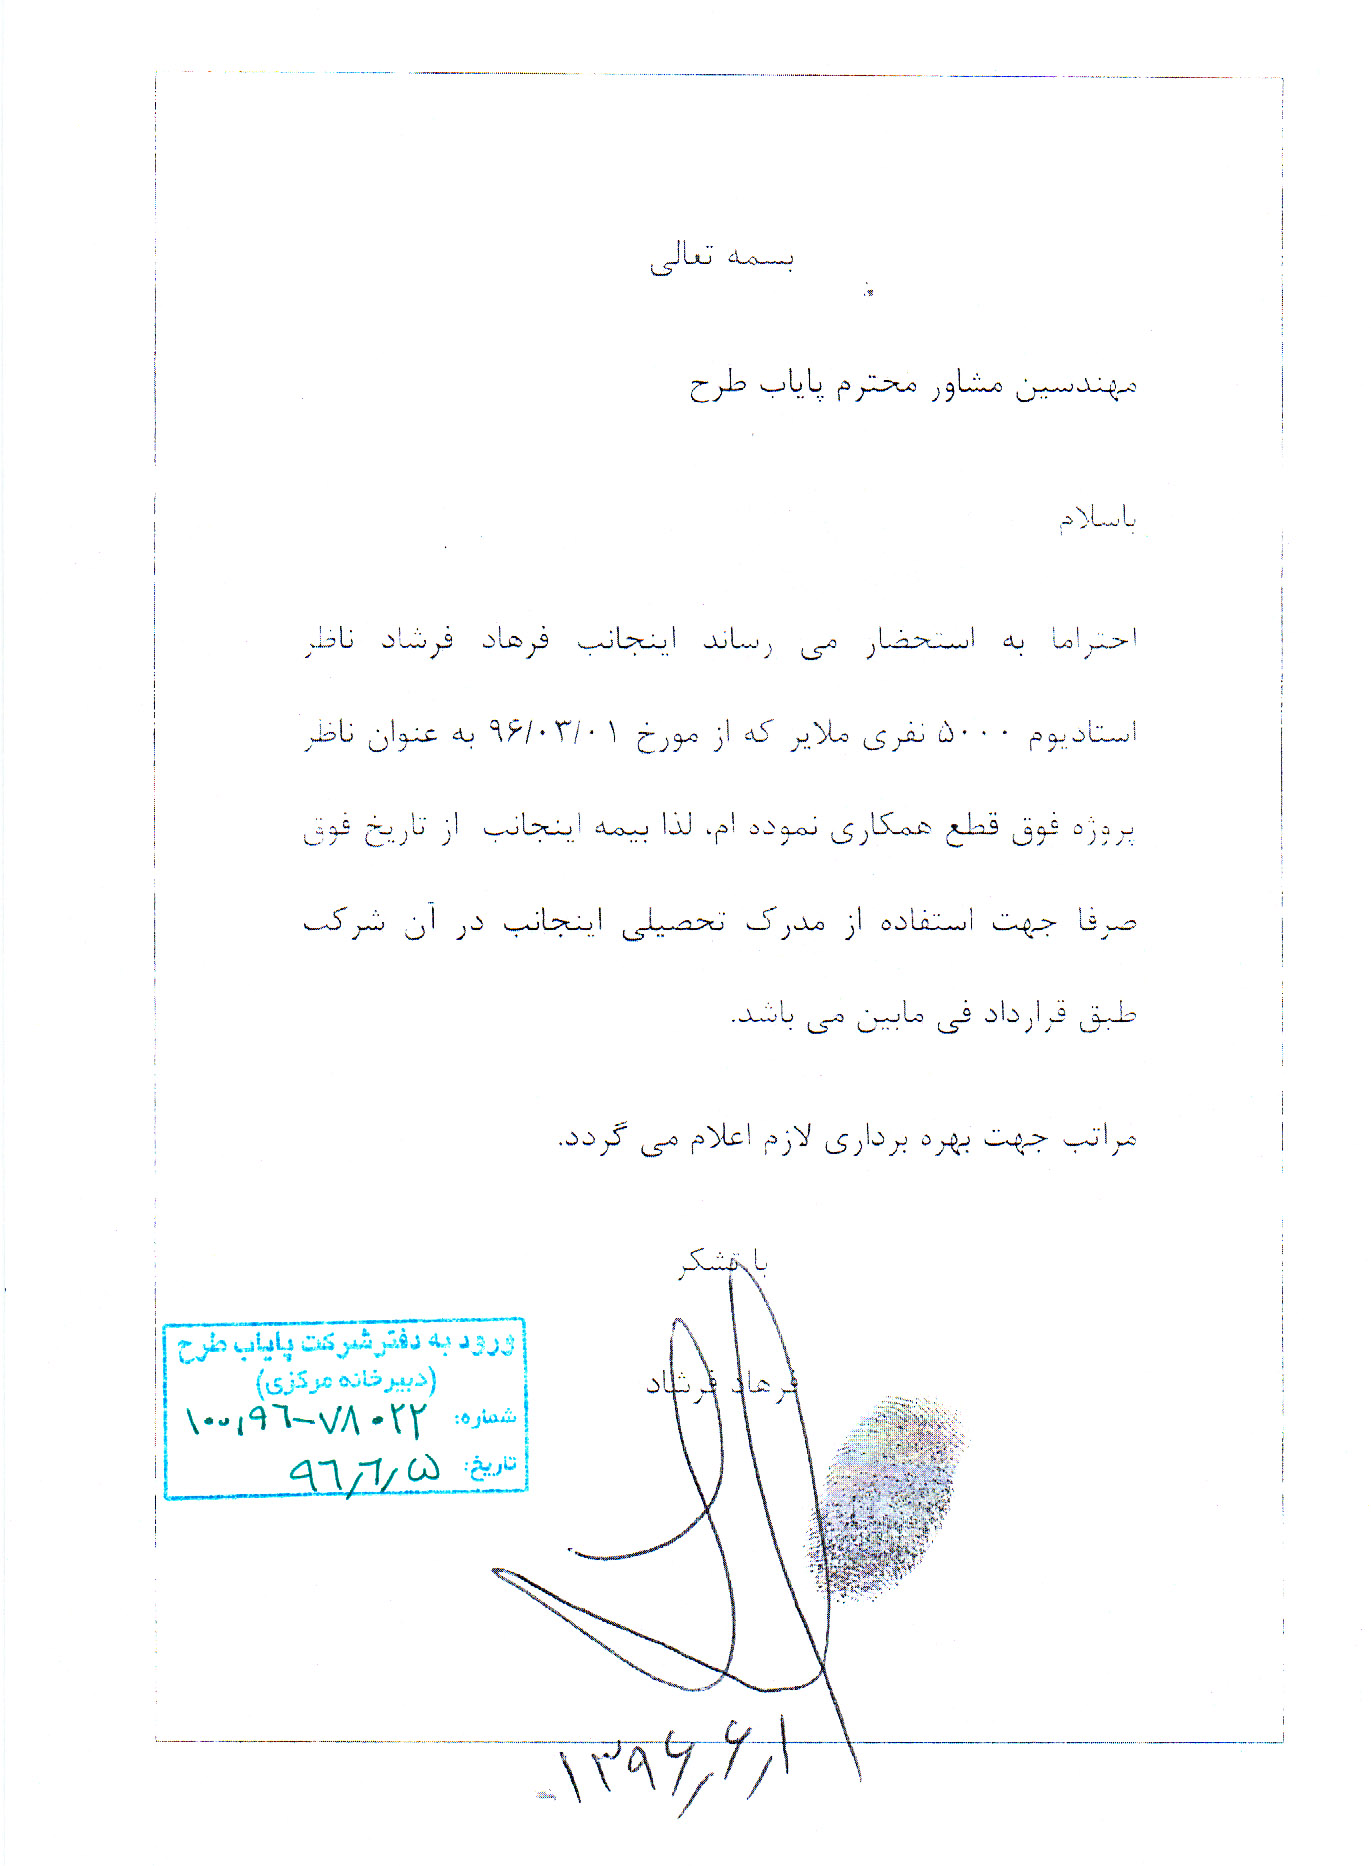 بسمه تعالی
مهندسین مشاور محترم پایاب طرح
باسلام
احتراما به استحضار می رساند اینجانب فرهاد فرشاد ناظر
استادیوم ۵۰۰۰ نفری ملایر که از مورخ ۹۶/۰۳/۰۱ به عنوان ناظر
پروژه فوق قطع همکاری نموده ام. لذا بیمه اینجانب از تاریخ فوق
صرفا جهت استفاده از مدرک تحصیلی اینجانب در آن شرکت
طبق قرارداد فی مابین می باشد.
مراتب جهت بهره برداری لازم اعلام می گردد.
با تشکر
فرهاد فرشاد
ورود به دفتر شرکت پایاب طرح
(دبیرخانه مرکزی)
شماره: ۱۰۰،۹۶-۷۸۰۲۲
تاریخ: ۹۶,۶,۵
۱۳۹۶,۶,۱